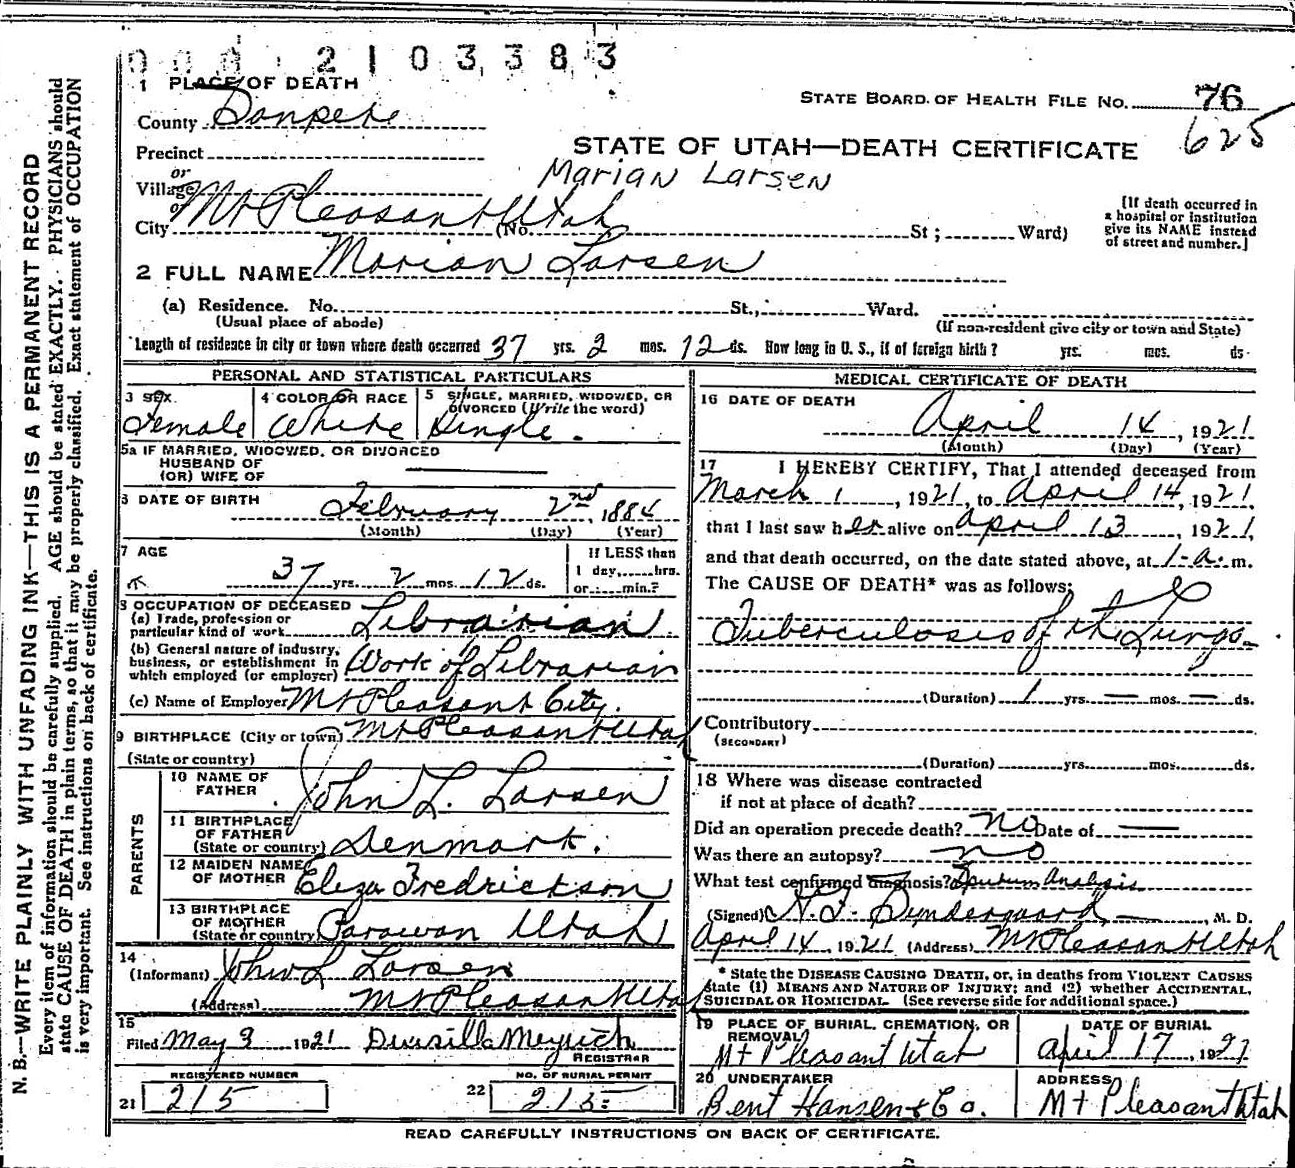 000 2103383
1 PLACE OF DEATH
STATE BOARD OF HEALTH FILE NO. 76
County Sanpete
625
STATE OF UTAH—DEATH CERTIFICATE
Precinct
or
Marian Larsen
Village
or
City Mt Pleasant Utah (No. St; Ward)
[If death occurred in
a hospital or institution
give its NAME instead
of street and number.]
2 FULL NAME Marian Larsen
(a) Residence. No. St., Ward.
(Usual place of abode) (If non-resident give city or town and State)
Length of residence in city or town where death occurred 37 yrs. 2 mos. 12 ds. How long in U. S., if of foreign birth? yrs. mos. ds.
PERSONAL AND STATISTICAL PARTICULARS
3 SEX 4 COLOR OR RACE 5 SINGLE, MARRIED, WIDOWED, OR
DIVORCED (Write the word)
Female White Single.
5a IF MARRIED, WIDOWED, OR DIVORCED
HUSBAND OF
(OR) WIFE OF
6 DATE OF BIRTH
February 2nd, 1884
(Month) (Day) (Year)
7 AGE
37 yrs. 2 mos. 12 ds.
If LESS than
1 day, hrs.
or min.?
8 OCCUPATION OF DECEASED
(a) Trade, profession or
particular kind of work Librarian
(b) General nature of industry,
business, or establishment in
which employed (or employer) Work of Librarian
(c) Name of Employer Mt Pleasant City.
9 BIRTHPLACE (City or town) Mt Pleasant Utah
(State or country)
PARENTS
10 NAME OF
FATHER John L. Larsen
11 BIRTHPLACE
OF FATHER
(State or country) Denmark.
12 MAIDEN NAME
OF MOTHER Eliza Fredrickson
13 BIRTHPLACE
OF MOTHER
(State or country) Parowan Utah
14
(Informant) John L Larsen
(Address) Mt Pleasant Utah
15
Filed May 3 1921 Drusilla
REGISTRAR
REGISTERED NUMBER NO. OF BURIAL PERMIT
21 215 22 215
MEDICAL CERTIFICATE OF DEATH
16 DATE OF DEATH
April 14, 1921
(Month) (Day) (Year)
17 I HEREBY CERTIFY, That I attended deceased from
March 1, 1921, to April 14, 1921,
that I last saw her alive on April 13, 1921,
and that death occurred, on the date stated above, at 1-a. m.
The CAUSE OF DEATH* was as follows:
Tuberculosis of the Lungs.
(Duration) 1 yrs. — mos. — ds.
Contributory
(SECONDARY)
(Duration) yrs. mos. ds.
18 Where was disease contracted
if not at place of death?
Did an operation precede death? no Date of —
Was there an autopsy? no
What test confirmed diagnosis? Sputum Analysis
(Signed) Sundergaard —, M. D.
April 14, 1921 (Address) Mt Pleasant Utah
* State the DISEASE CAUSING DEATH, or, in deaths from VIOLENT CAUSES
state (1) MEANS AND NATURE OF INJURY; and (2) whether ACCIDENTAL,
SUICIDAL OR HOMICIDAL. (See reverse side for additional space.)
19 PLACE OF BURIAL, CREMATION, OR
REMOVAL
Mt Pleasant Utah
DATE OF BURIAL
April 17, 1921
20 UNDERTAKER
Bent Hansen & Co.
ADDRESS
Mt Pleasant Utah
READ CAREFULLY INSTRUCTIONS ON BACK OF CERTIFICATE.
N. B.—WRITE PLAINLY WITH UNFADING INK—THIS IS A PERMANENT RECORD
Every item of information should be carefully supplied. AGE should be stated EXACTLY. PHYSICIANS should
state CAUSE OF DEATH in plain terms, so that it may be properly classified. Exact statement of OCCUPATION
is very important. See instructions on back of certificate.